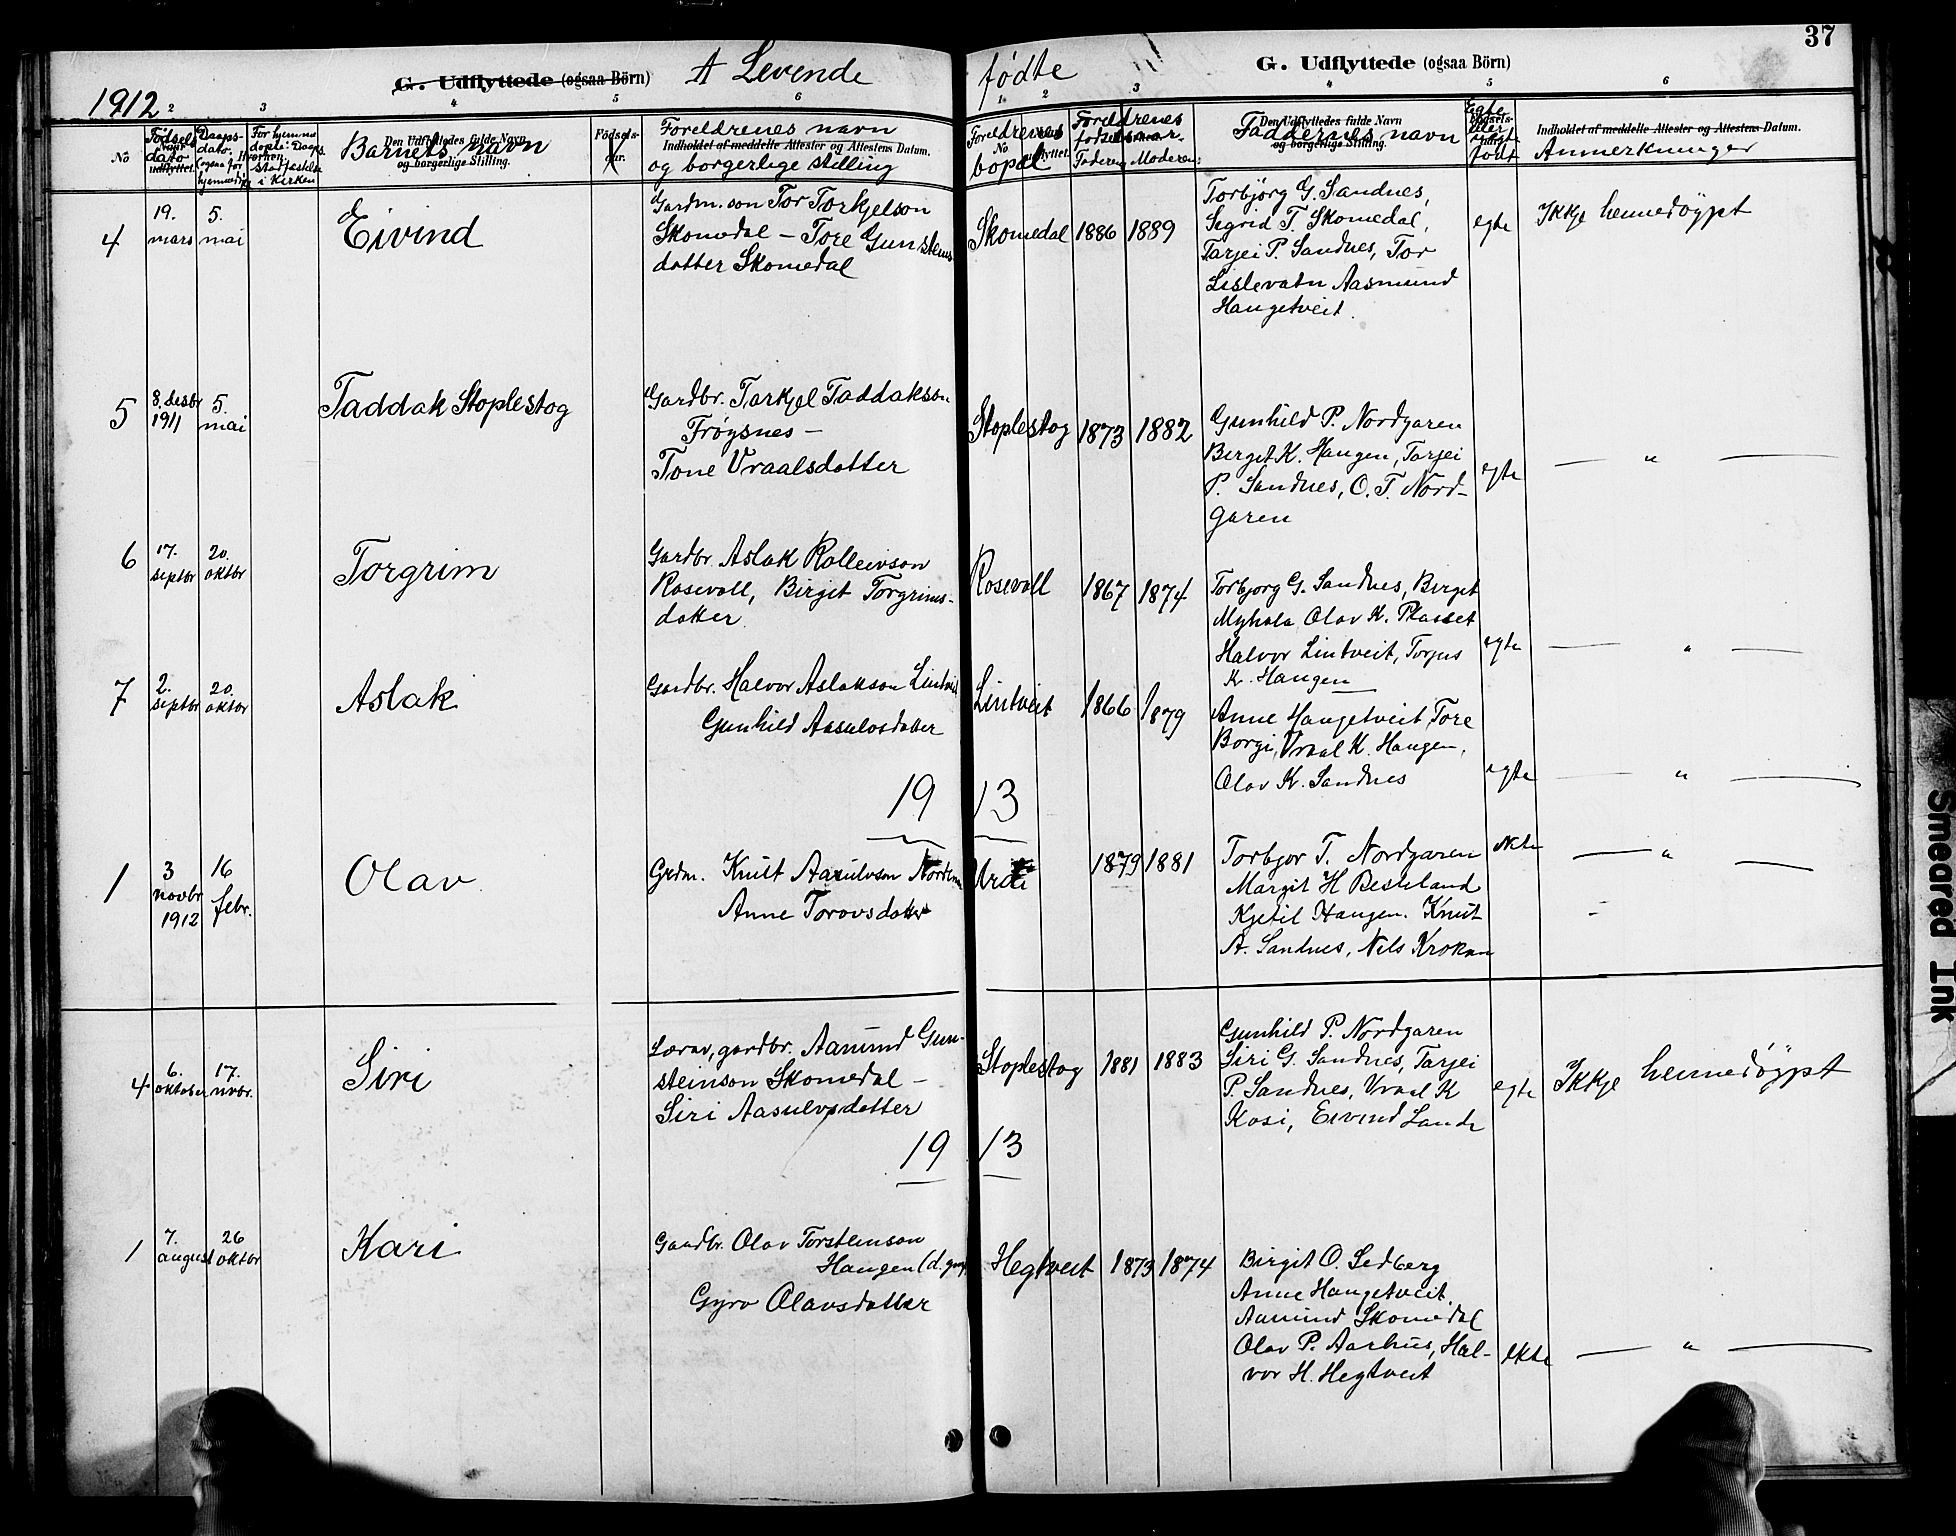 37
G. Udflyttede (ogsaa Börn) A Levende fødte G. Udflyttede (ogsaa Börn)
1912
2 3 4 5 6 1 2 3 4 5 6
No
Fødsels dato
Daaps-dato.
Barnets navn
Den Udflyttedes fulde Navn
og borgerlige Stilling.
Födsels-
aar.
Foreldrenes navn
Indholdet af meddelte Attester og Attestens Datum.
og borgerlige stilling
Foreldrenes
bopæl
Foreldrenes
fødselsaar.
Faderen Moderen:
Den Udflyttedes fulde Navn
Faddernes navn
og borgerlige Stilling.
Egte
eller
født
Indholdet af meddelte Attester og Attestens Datum.
Anmerkninger
4
19. mars
5. mai
Eivind
Gardm. son Tor Torkjelson
Skomedal – Tore Gunstens
datter Skomedal
Skomedal 1886 1889
Torbjørg G. Sandnes,
Sigrid T. Skomedal,
Tarjei P. Sandnes, Tor
Lislevatn Aasmund
Haugetveit.
egte
Ikkje heimedøypt
5
8. desbr
1911
5. mai
Taddak Stoplestog
Gardbr. Tarkjel Taddakson
Frøysnes –
Tone Vraalsdatter
Stoplestog 1873 1882
Gunhild P. Nordgaren
Birgit K. Haugen, Tarjei
P. Sandnes, O. T. Nord-
garen
egte
— " —
6
17. septbr
20. oktbr
Torgrim
Gardbr. Aslak Rolleivson
Rosevoll, Birgit Torgrims-
datter
Rosevoll 1867 1874
Torbjorg G. Sandnes, Birgit
Olav K.
Halvor Lintveit, Torjus
K. Haugen
egte
— " —
7
2. septbr
20. oktbr
Aslak
Gardbr. Halvor Aslakson Lintveit
Gunhild Aasulvsdatter
Lintveit 1866 1879
Anne Haugetveit, Tore
Borgi, Vraal K. Haugen,
Olav K. Sandnes
egte
— " —
19 13
1
3 novbr
1912
16 febr.
Olav
Grdm. Knut Aasulvson
Anne Torovsdatter
1879 1881
Torbjor T. Nordgaren
Margit H
Kjetil Haugen. Knut
A. Sandnes, Nils Krokan
ekte
— " —
4
6. oktober
17. novbr.
Siri
Lærar, gardbr. Aamund Gun-
steinson Skomedal –
Siri Aasulvsdatter
Stoplestog 1881 1883
Gunhild P. Nordgaren
Siri G. Sandnes, Tarjei
P. Sandnes, Vraal K
Kosi, Eivind Lande
egte
Ikkje heimedøypt
19 13
1
7. august
26 oktbr
Kari
Gardbr. Olav Torsteinson
Haugen
Gyro Olavsdatter
Hegtveit 1873 1874
Birgit O. Sedberg
Anne Haugetveit
Aamund Skomedal
Olav P. Aarhus, Hal-
vor H. Hegtveit
ekte
— " —
Smeared Ink